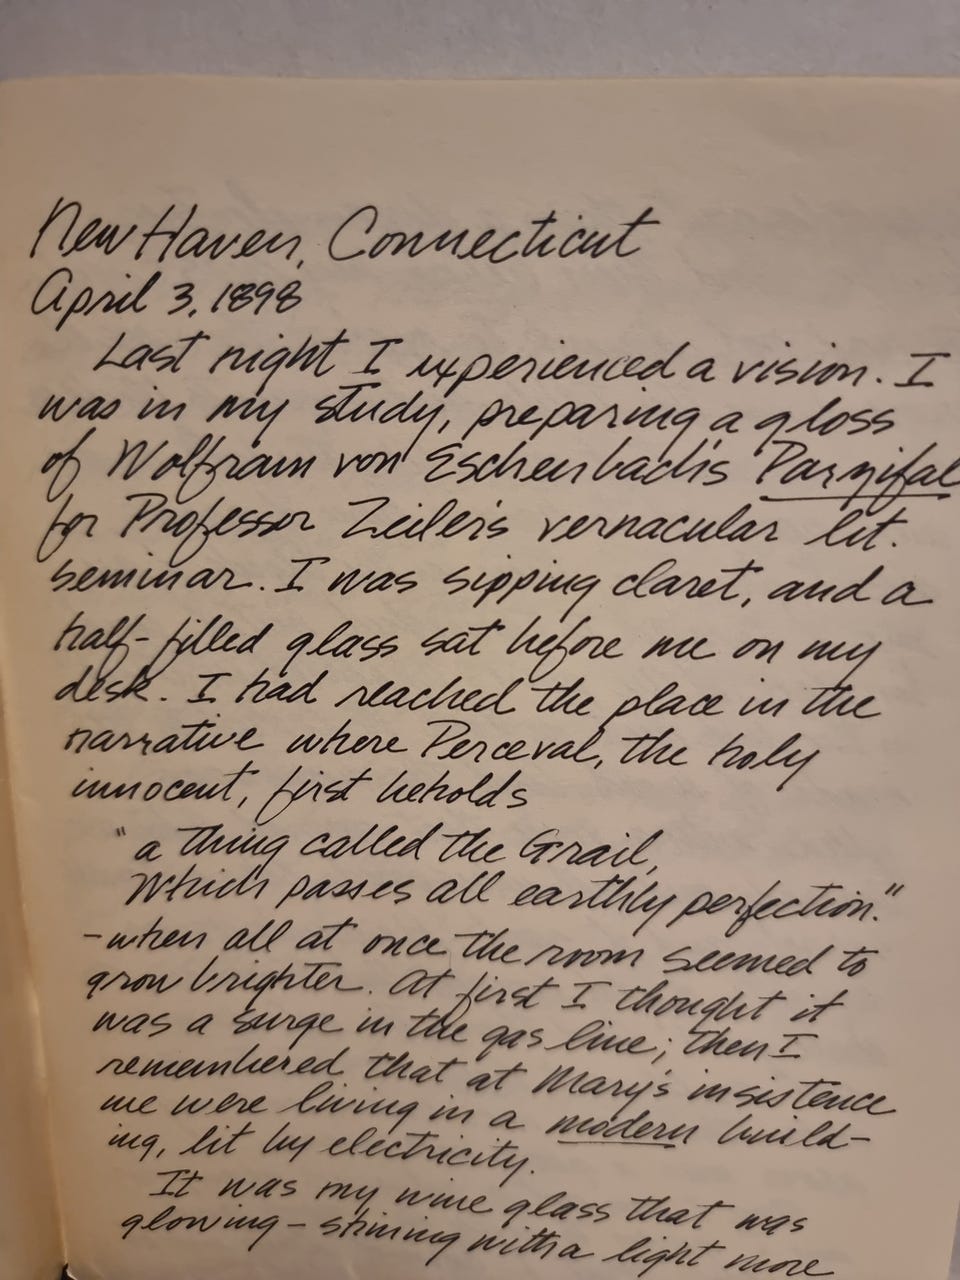 New Haven, Connecticut
April 3, 1898
Last night I experienced a vision. I
was in my study, preparing a gloss
of Wolfram von Eschenbach's Parzifal
for Professor Zeiler's vernacular lit.
seminar. I was sipping claret, and a
half-filled glass sat before me on my
desk. I had reached the place in the
narrative where Perceval, the holy
innocent, first beholds
"a thing called the Grail,
Which passes all earthly perfection."
-when all at once the room seemed to
grow brighter. At first I thought it
was a surge in the gas line; then I
remembered that at Mary's insistence
we were living in a modern build-
ing, lit by electricity.
It was my wine glass that was
glowing - shining with a light more